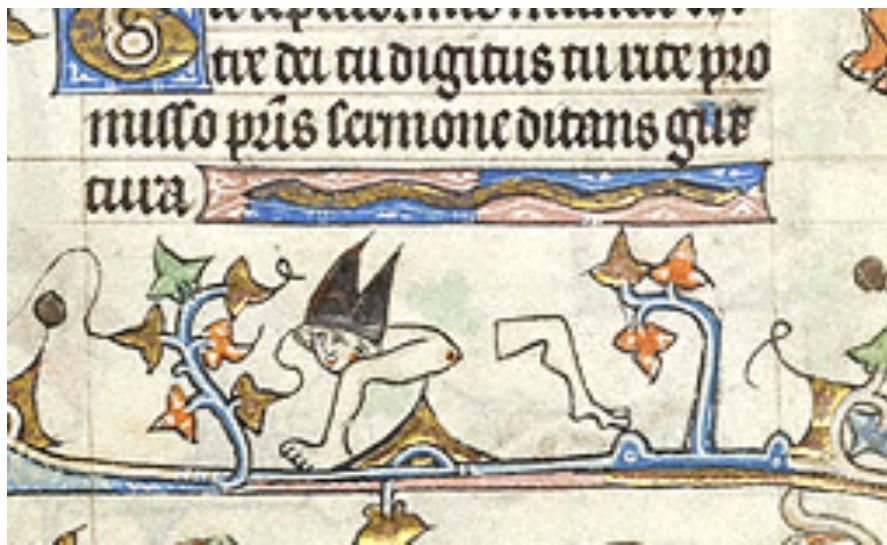 tre dei tu digitus tu rite pro
misso pr̄is sermone ditans gut
tura